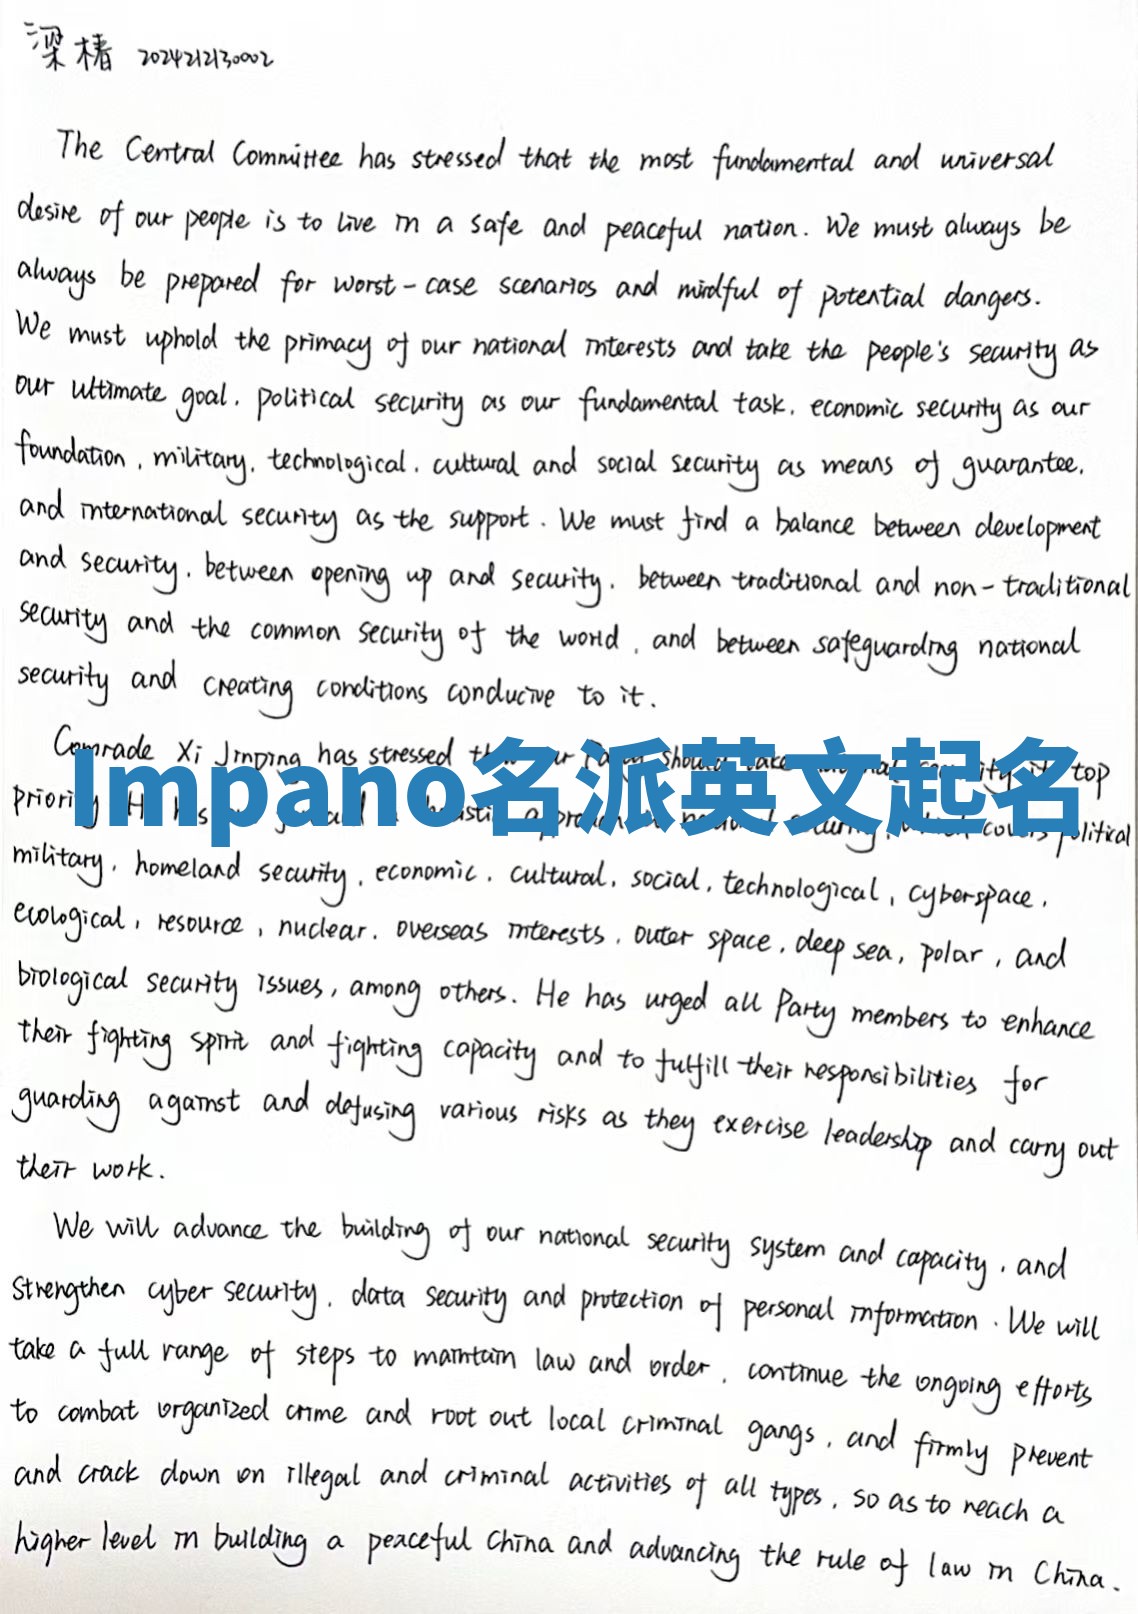 梁椿 2024212130002
The Central Committee has stressed that the most fundamental and universal
desire of our people is to live in a safe and peaceful nation. We must always be
always be prepared for worst-case scenarios and mindful of potential dangers.
We must uphold the primacy of our national interests and take the people's security as
our ultimate goal, political security as our fundamental task, economic security as our
foundation, military, technological, cultural and social security as means of guarantee,
and international security as the support. We must find a balance between development
and security, between opening up and security, between traditional and non-traditional
security and the common security of the world, and between safeguarding national
security and creating conditions conducive to it.
Comrade Xi Jinping has stressed top
Impano名派英文起名
priority political
military, homeland security, economic, cultural, social, technological, cyberspace,
ecological, resource, nuclear, overseas interests, outer space, deep sea, polar, and
biological security issues, among others. He has urged all Party members to enhance
their fighting spirit and fighting capacity and to fulfill their responsibilities for
guarding against and defusing various risks as they exercise leadership and carry out
their work.
We will advance the building of our national security system and capacity, and
strengthen cyber security, data security and protection of personal information. We will
take a full range of steps to maintain law and order, continue the ongoing efforts
to combat organized crime and root out local criminal gangs, and firmly prevent
and crack down on illegal and criminal activities of all types, so as to reach a
higher level in building a peaceful China and advancing the rule of law in China.